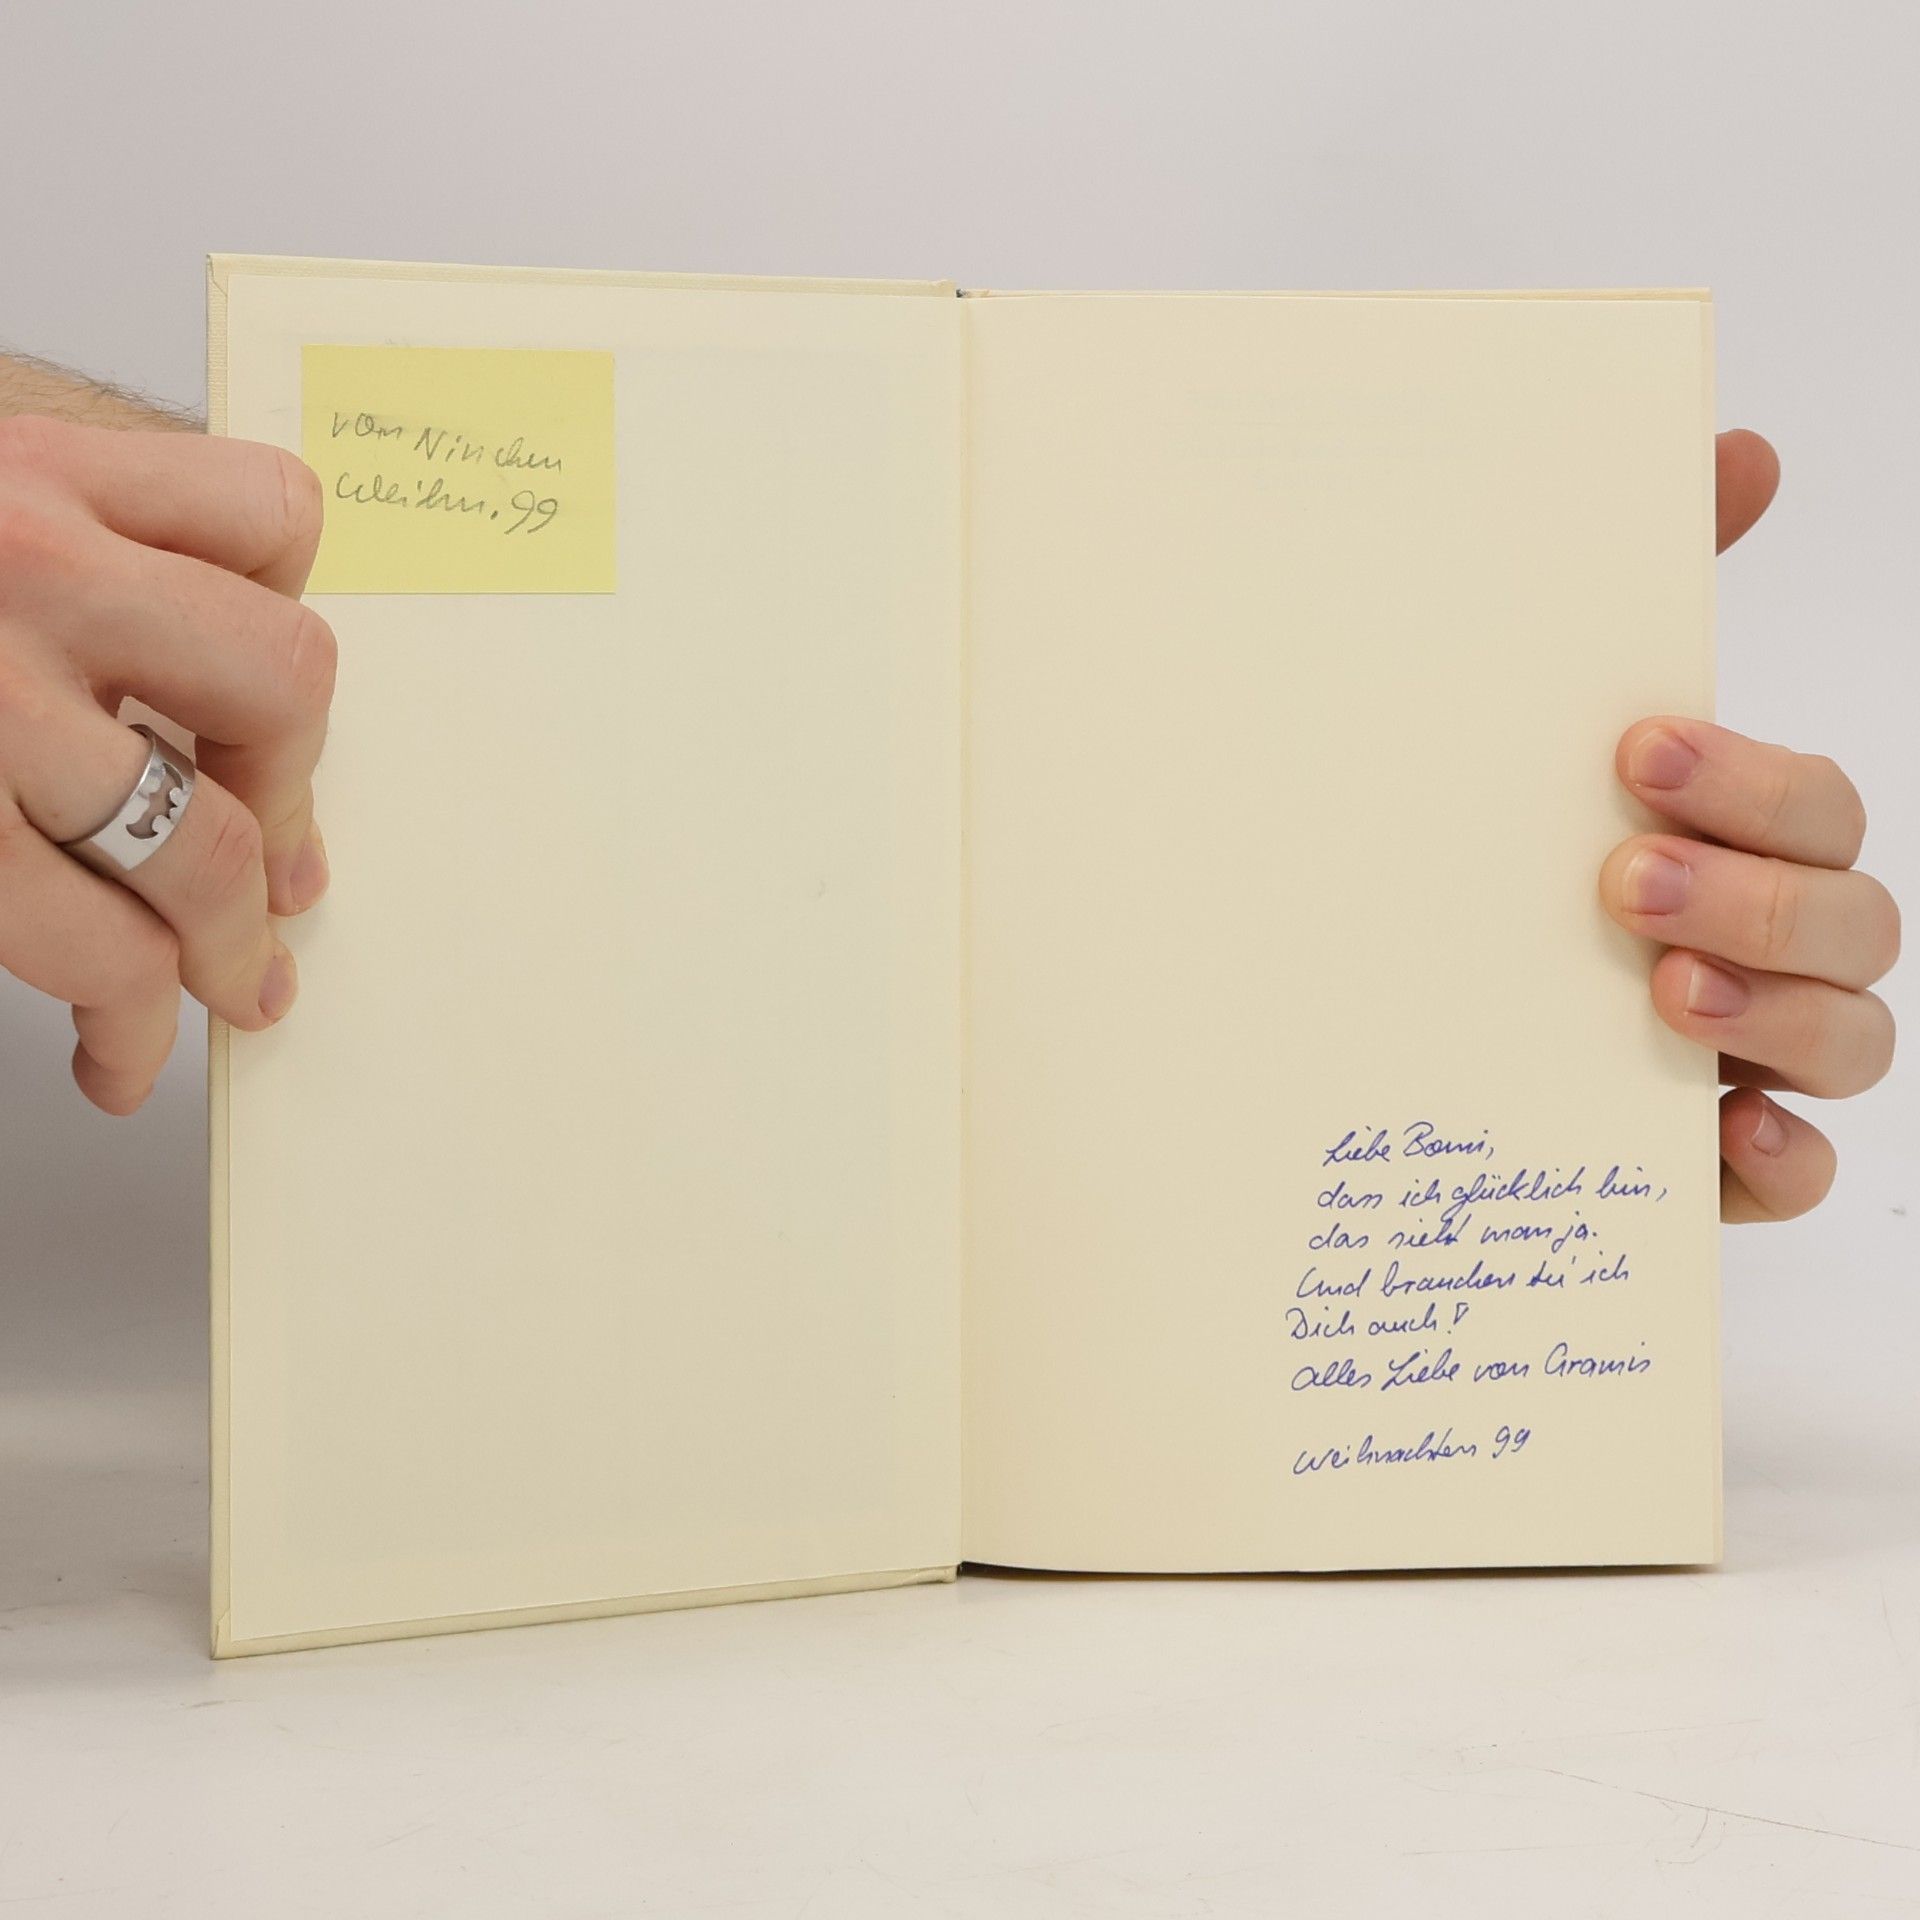 von Ninchen
Weihn. 99
Liebe Bomi,
dass ich glücklich bin,
das sieht man ja.
Und brauchen tu' ich
Dich auch!
Alles Liebe von Gramis
Weihnachten 99